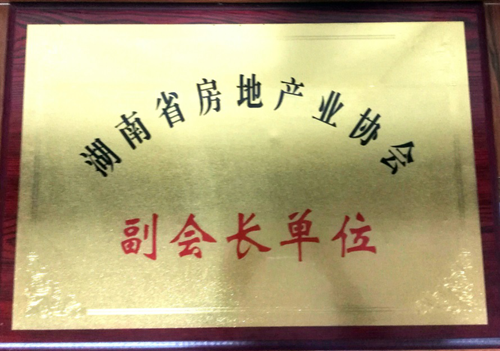 湖南省房地产业协会
副会长单位